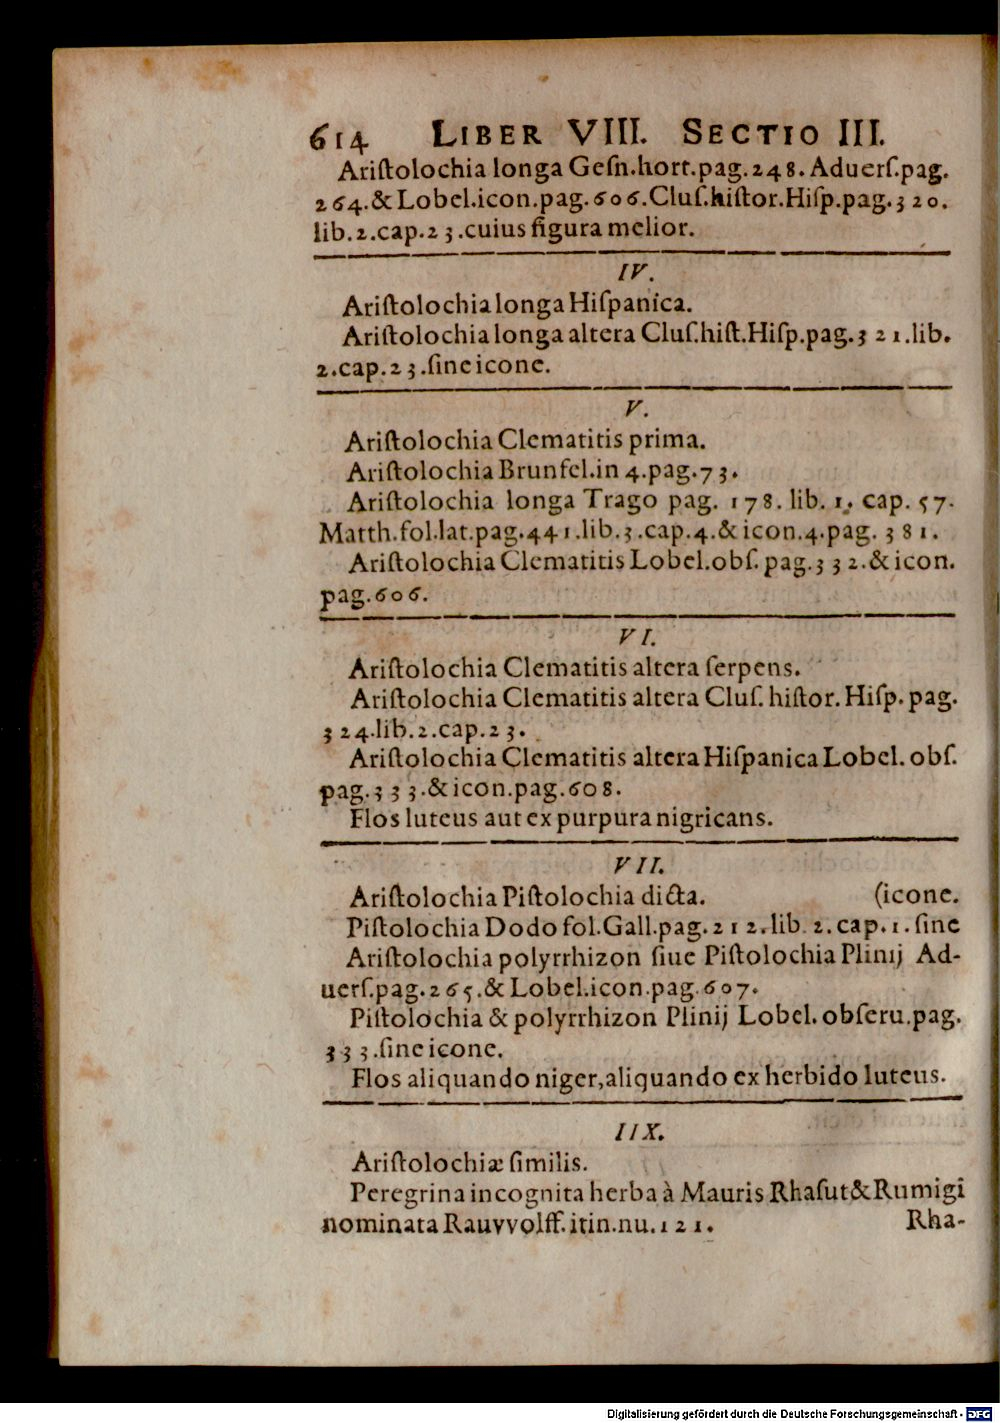 614 LIBER VIII. SECTIO III.
Ariſtolochia longa Geſn.hort.pag.248. Aduerſ.pag.
264.& Lobel.icon.pag.606.Cluſ.hiſtor.Hiſp.pag.320.
lib.2.cap.23.cuius figura melior.
IV.
Ariſtolochia longa Hiſpanica.
Ariſtolochia longa altera Cluſ.hiſt.Hiſp.pag.321.lib.
2.cap.23.ſine icone.
V.
Ariſtolochia Clematitis prima.
Ariſtolochia Brunfel.in 4.pag.73.
Ariſtolochia longa Trago pag. 178. lib. 1. cap. 57.
Matth.fol.lat.pag.441.lib.3.cap.4.& icon.4.pag. 381.
Ariſtolochia Clematitis Lobel.obſ. pag.332.& icon.
pag.606.
VI.
Ariſtolochia Clematitis altera ſerpens.
Ariſtolochia Clematitis altera Cluſ. hiſtor. Hiſp. pag.
324.lib.2.cap.23.
Ariſtolochia Clematitis altera Hiſpanica Lobel. obſ.
pag.333.& icon.pag.608.
Flos luteus aut ex purpura nigricans.
VII.
Ariſtolochia Piſtolochia dicta. (icone.
Piſtolochia Dodo fol.Gall.pag.212.lib.2.cap.1.ſine
Ariſtolochia polyrrhizon ſiue Piſtolochia Plinij Ad-
uerſ.pag.265.& Lobel.icon.pag.607.
Piſtolochia & polyrrhizon Plinij Lobel. obſeru.pag.
333.ſine icone.
Flos aliquando niger,aliquando ex herbido luteus.
IIX.
Ariſtolochiæ ſimilis.
Peregrina incognita herba à Mauris Rhaſut & Rumigi
nominata Rauvvolff. itin.nu.121.
Rha-
Digitalisierung gefördert durch die Deutsche Forschungsgemeinschaft - DFG